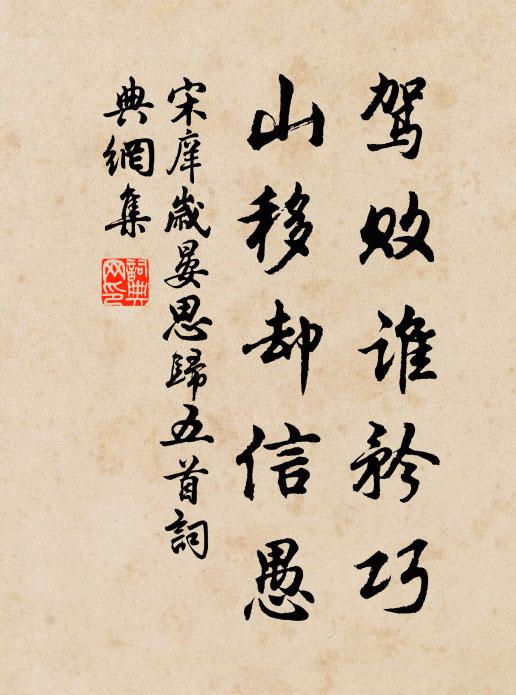 驾败谁矜巧
山移却信愚
宋庠歲晏思歸五首詞
典網集
詞典
网印